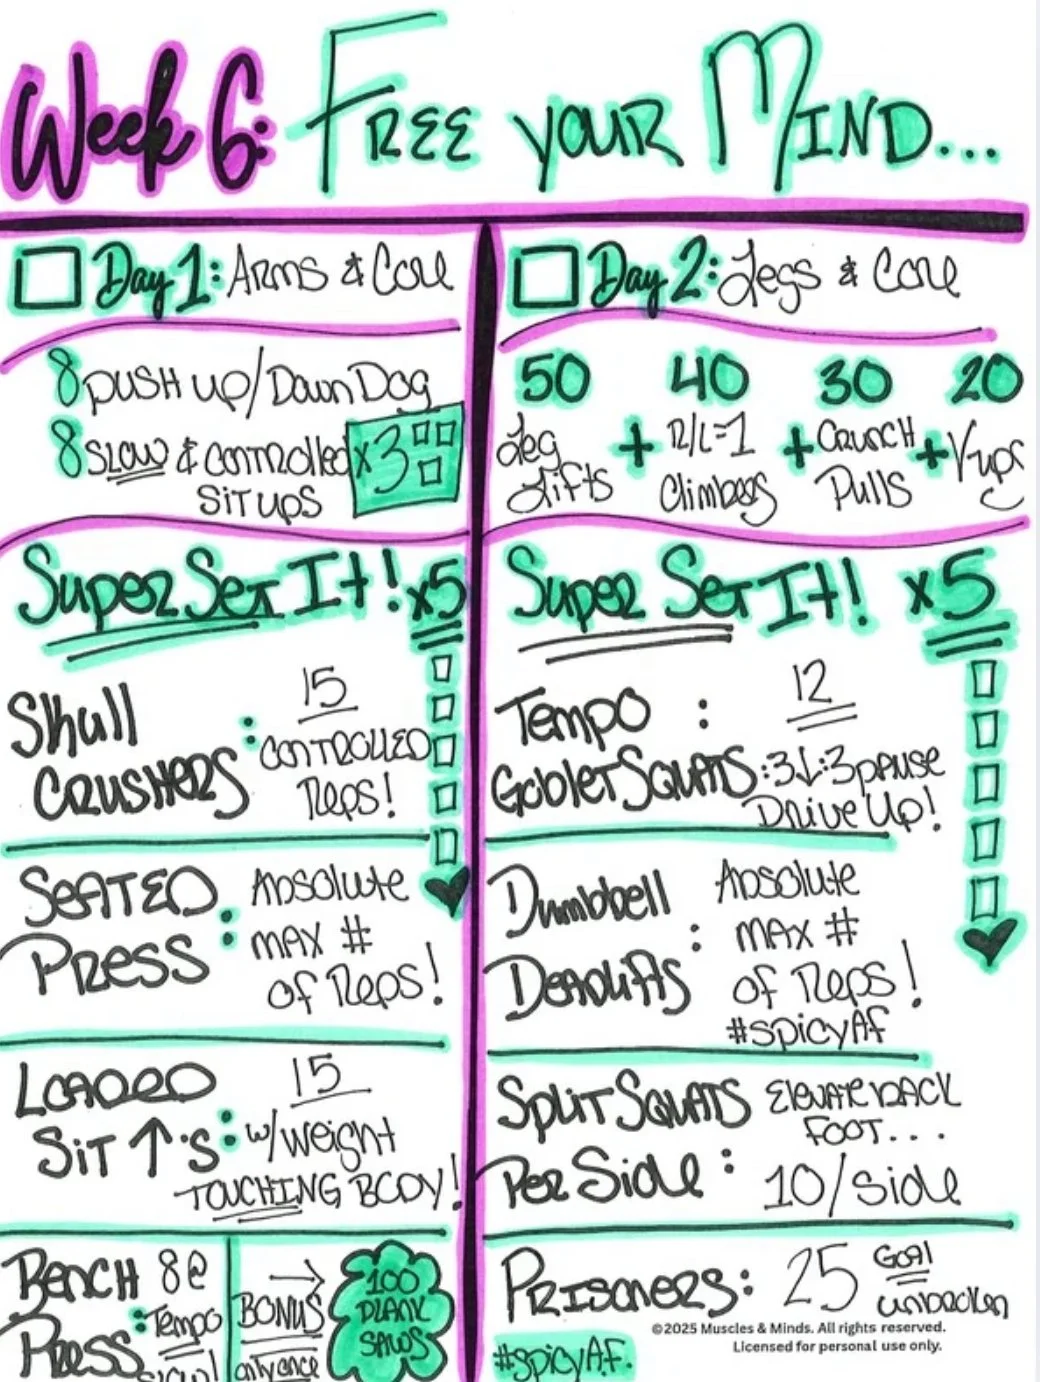 Week 6: FREE YOUR MIND...
Day 1: Arms & Core
8 PUSH UP/Down Dog
8 SLOW & controlled
SIT UPS
x3
Super Set It! x5
Skull
CRUSHERS:
15
CONTROLLED
Reps!
SEATED
PRESS:
Absolute
max #
of Reps!
LOADED
SIT ↑'s:
15
w/weight
TOUCHING BODY!
BENCH
PRESS:
8 @
Tempo
slow!
→
BONUS
only once
100
PLANK
SAWS
Day 2: Legs & Core
50 40 30 20
Leg
Lifts
+
R/L=1
Climbers
+
CRUNCH
Pulls
+
V ups
Super Set It! x5
Tempo
Goblet SQUATS:
12
:3↓:3 pause
Drive Up!
Dumbbell
Deadlifts:
Absolute
max #
of Reps!
#spicyAF
Split SQUATS
Per Side:
Elevate BACK
FOOT...
10/side
PRISONERS: 25
Goal
unbroken
©2025 Muscles & Minds. All rights reserved.
Licensed for personal use only.
#spicyAF.